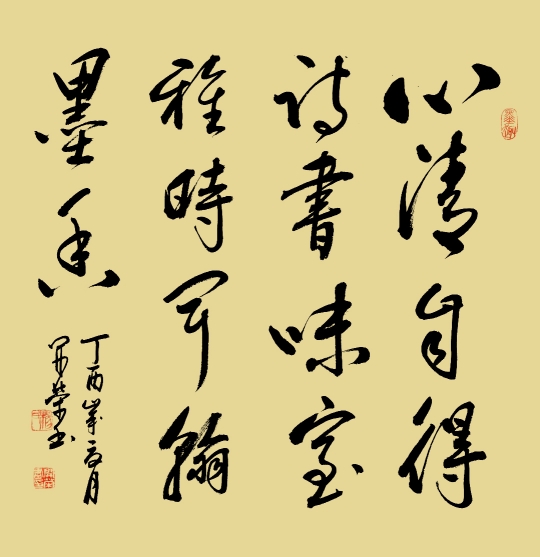 心清自得
詩書味室
雅時聞翰
墨香
丁酉歲夏月
開榮書